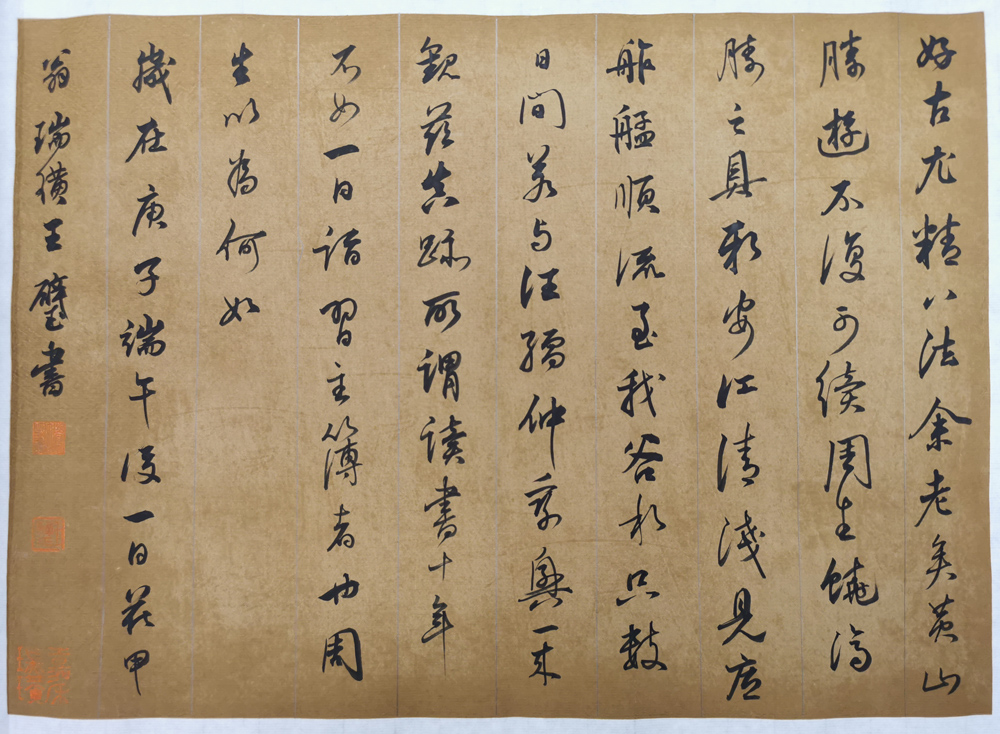 好古尤精八法余老矣黄山
勝遊不復可續周生饒濟
勝之具新安江清淺見底
舴艋順流至我谷水只數
日間若与汪孺仲孝興一来
觀茲真跡所謂读書十年
不如一日詣習主簿者也周
生以為何如
歲在庚子端午後一日花甲
翁瑞獚王璧書